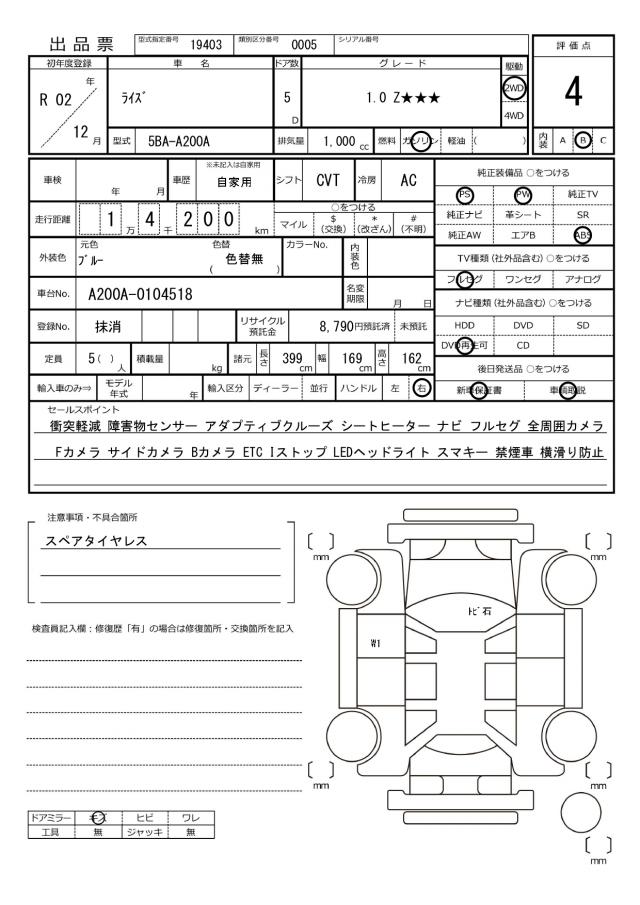 出品票 型式指定番号 19403 類別区分番号 0005 シリアル番号
評価点
初年度登録 車名 ドア数 グレード 駆動
R 02 年 ﾗｲｽﾞ 5 D 1.0 Z★★★ 2WD 4
12 月 4WD
型式 5BA-A200A 排気量 1,000 cc 燃料 ガソリン 軽油 ( ) 内装 A B C
車検 年 月 車歴 ※未記入は自家用 自家用 シフト CVT 冷房 AC
純正装備品 ○をつける
PS PW 純正TV
走行距離 1 万 4 千 2 0 0 km ○をつける
マイル $ (交換) * (改ざん) # (不明)
純正ナビ 革シート SR
純正AW エアB ABS
外装色 元色 ﾌﾞﾙｰ 色替 ( 色替無 ) カラーNo. 内装色
TV種類 (社外品含む) ○をつける
フルセグ ワンセグ アナログ
車台No. A200A-0104518 名変期限 月 日
ナビ種類 (社外品含む) ○をつける
登録No. 抹消 リサイクル預託金 8,790円預託済 未預託
HDD DVD SD
DVD再生可 CD
定員 5 ( ) 人 積載量 kg 諸元 長さ 399 cm 幅 169 cm 高さ 162 cm
後日発送品 ○をつける
輸入車のみ⇒ モデル年式 年 輸入区分 ディーラー 並行 ハンドル 左 右
新車保証書 車輌取説
セールスポイント
衝突軽減 障害物センサー アダプティブクルーズ シートヒーター ナビ フルセグ 全周囲カメラ
Fカメラ サイドカメラ Bカメラ ETC Iストップ LEDヘッドライト スマキー 禁煙車 横滑り防止
注意事項・不具合箇所
スペアタイヤレス
〔 〕 mm
〔 〕 mm
ﾄﾋﾞ石
検査員記入欄：修復歴「有」の場合は修復箇所・交換箇所を記入
W1
〔 〕 mm
〔 〕 mm
ドアミラー キズ ヒビ ワレ
工具 無 ジャッキ 無
〔 〕 mm